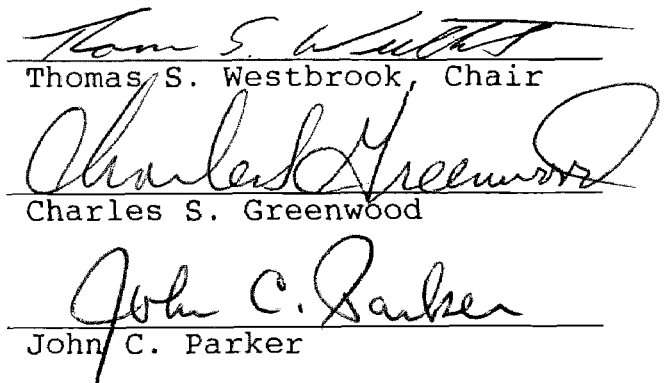 Thomas S. Westbrook, Chair
Charles S. Greenwood
Charles S. Greenwood
John C. Parker
John C. Parker